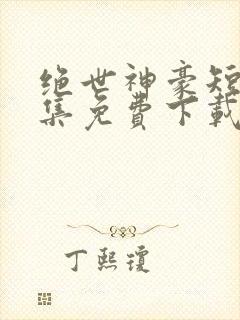 绝世神豪短
集免费下载
丁熙琼